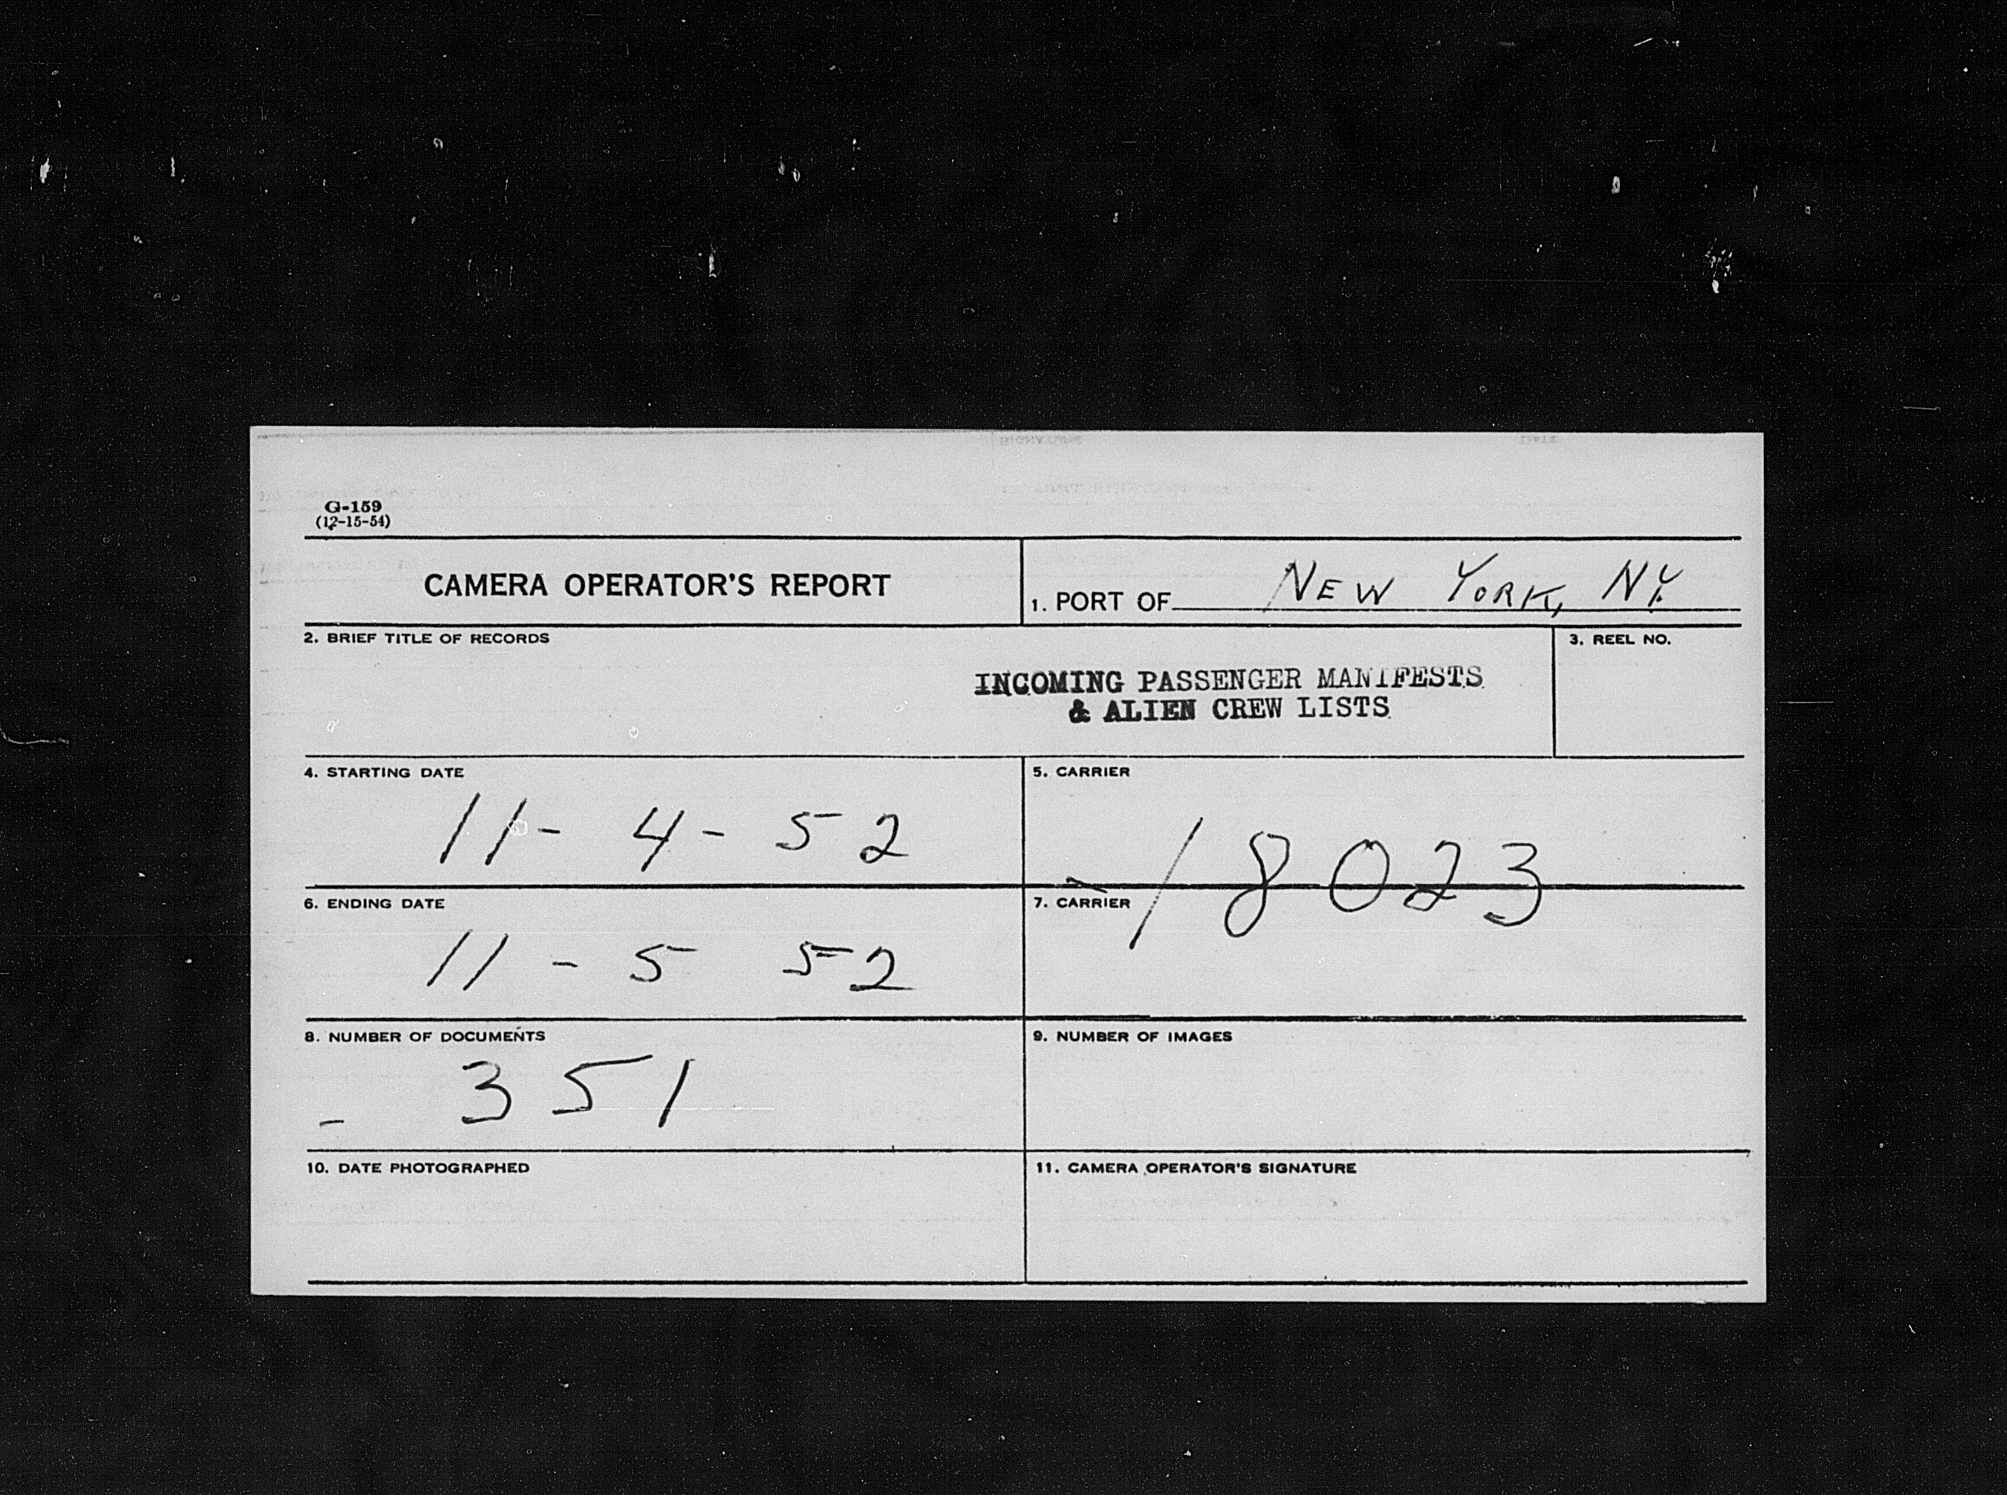 G-159
(12-15-54)
CAMERA OPERATOR'S REPORT
1. PORT OF NEW YORK, N.Y.
2. BRIEF TITLE OF RECORDS
INCOMING PASSENGER MANIFESTS
& ALIEN CREW LISTS
3. REEL NO.
4. STARTING DATE
11- 4- 52
5. CARRIER
18023
6. ENDING DATE
11 - 5 52
7. CARRIER
8. NUMBER OF DOCUMENTS
- 351
9. NUMBER OF IMAGES
10. DATE PHOTOGRAPHED
11. CAMERA OPERATOR'S SIGNATURE